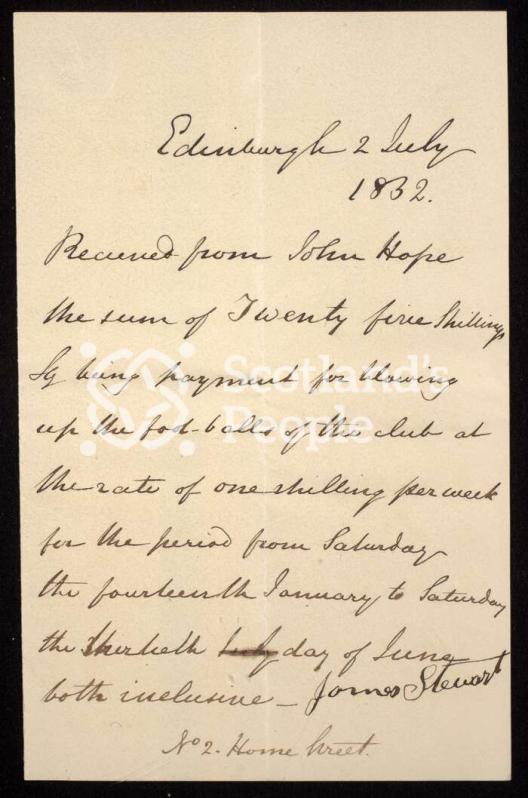 Edinburgh 2 July
1832.
Received from John Hope
the sum of Twenty five Shillings
Sg being payment for blowing
up the foot-balls of the club at
the rate of one shilling per week
for the period from Saturday
the fourteenth January to Saturday
the thirtieth July day of June
both inclusive – James Stewart
No 2. Home Street.
Scotland's
People